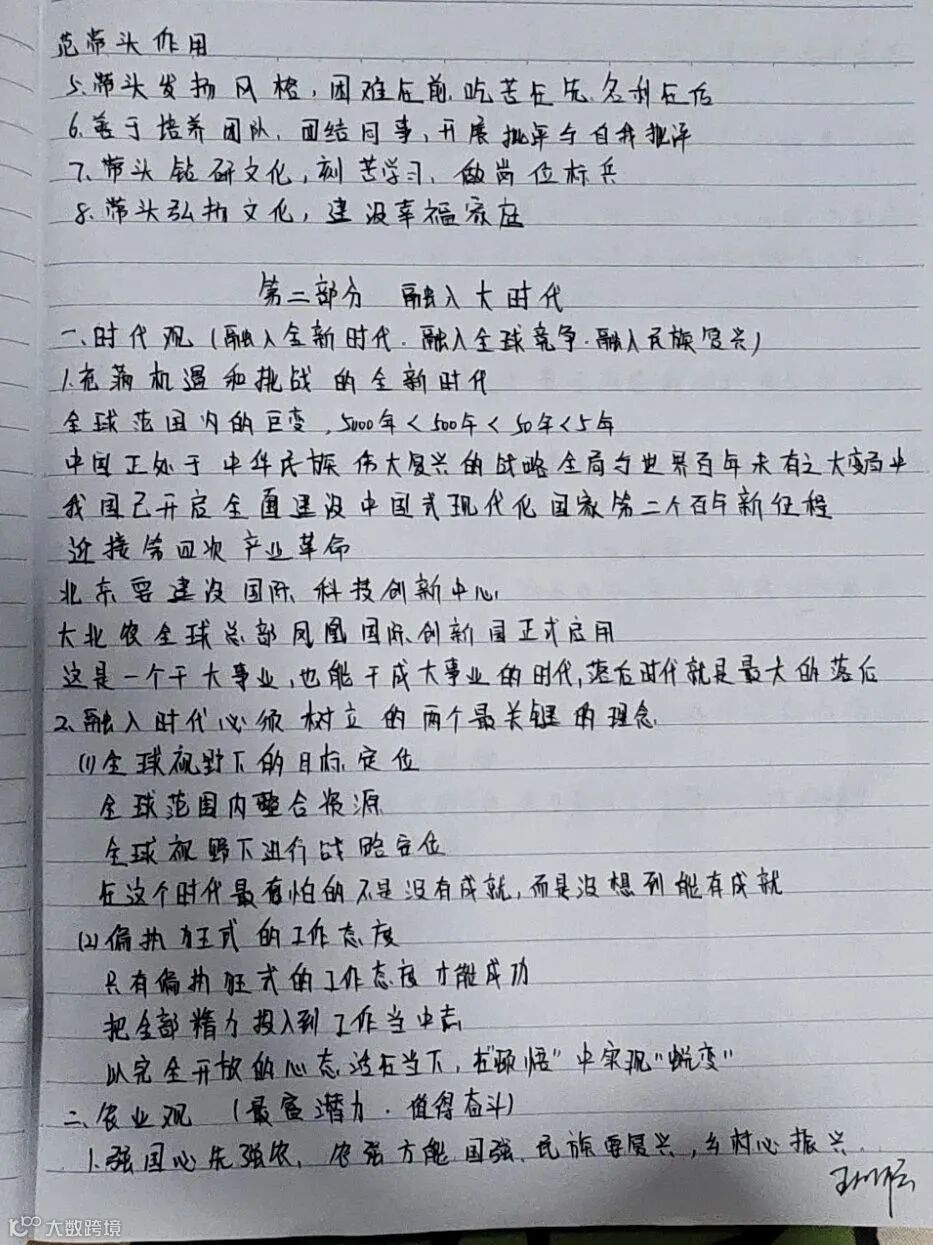 范带头作用
5.带头发扬风格，困难在前、吃苦在先、名利在后
6.善于培养团队、团结同事，开展批评与自我批评
7、带头钻研文化，刻苦学习、做岗位标兵
8.带头弘扬文化，建设幸福家庭
第二部分 融入大时代
一、时代观（融入全新时代·融入全球竞争·融入民族复兴）
1.充满机遇和挑战的全新时代
全球范围内的巨变，5000年<500年<50年<5年
中国正处于中华民族伟大复兴的战略全局与世界百年未有之大变局中
我国已开启全面建设中国式现代化国家第二个百年新征程
迎接第四次产业革命
北京要建设国际科技创新中心
大北农全球总部凤凰国际创新园正式启用
这是一个干大事业，也能干成大事业的时代，落后时代就是最大的落后
2.融入时代必须树立的两个最关键的理念
(1)全球视野下的目标定位
全球范围内整合资源
全球视野下进行战略定位
在这个时代最可怕的不是没有成就，而是没想到能有成就
(2)偏执狂式的工作态度
只有偏执狂式的工作态度才能成功
把全部精力投入到工作当中去
以完全开放的心态活在当下，在"顿悟"中实现"蜕变"
二、农业观（最富潜力·值得奋斗）
1.强国必先强农、农强方能国强、民族要复兴，乡村必振兴
大数跨境